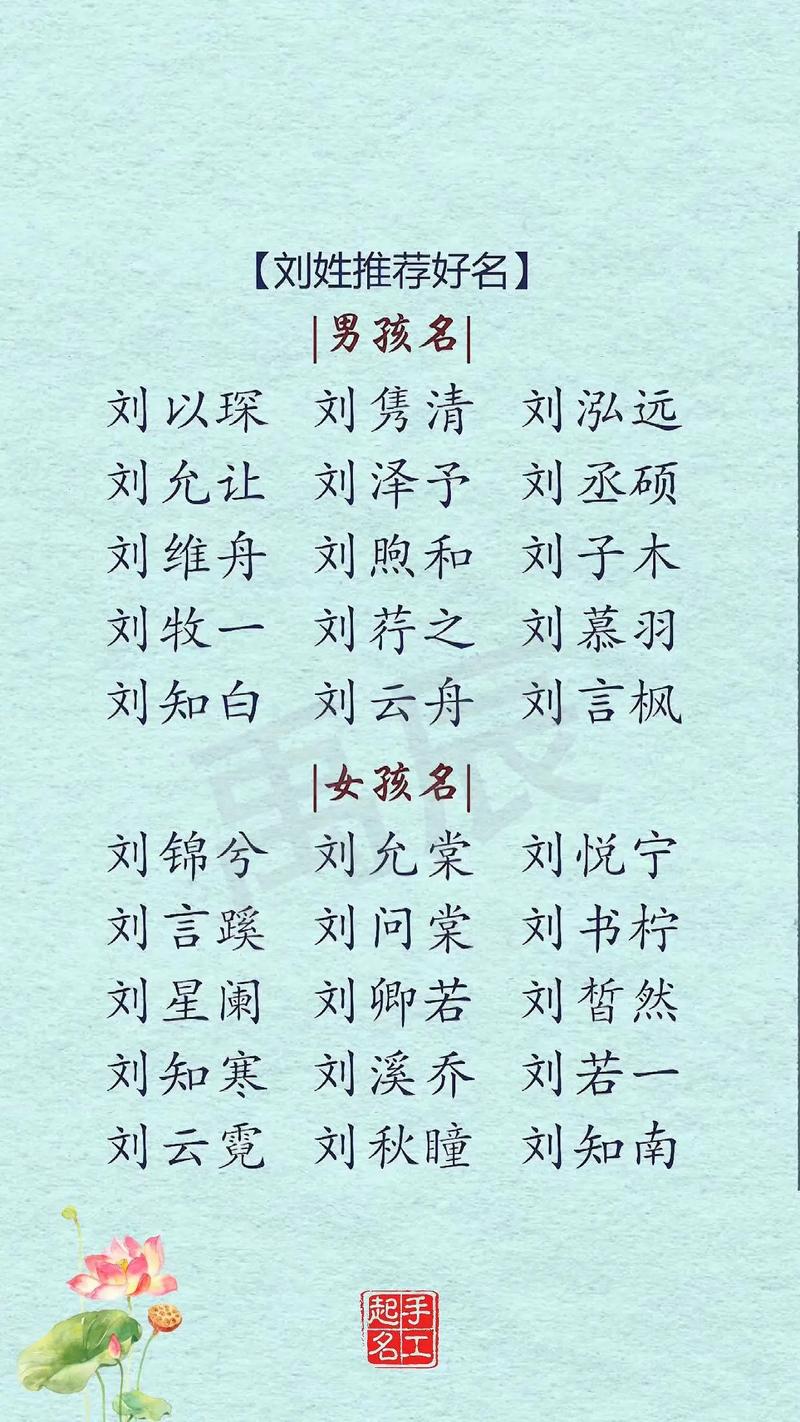 【刘姓推荐好名】
|男孩名|
刘以琛 刘隽清 刘泓远
刘允让 刘泽予 刘丞硕
刘维舟 刘煦和 刘子木
刘牧一 刘荇之 刘慕羽
刘知白 刘云舟 刘言枫
|女孩名|
刘锦兮 刘允棠 刘悦宁
刘言蹊 刘问棠 刘书柠
刘星阑 刘卿若 刘皙然
刘知寒 刘溪乔 刘若一
刘云霓 刘秋瞳 刘知南
手工
起名